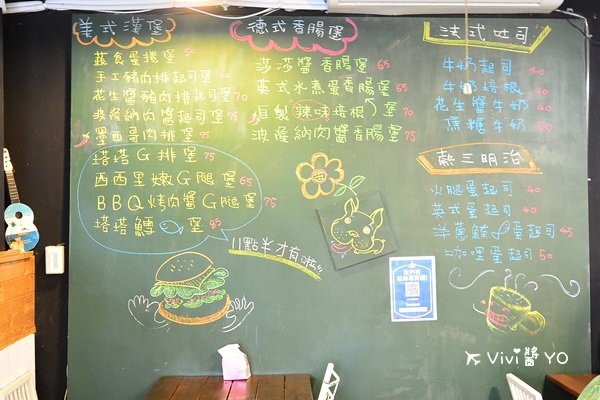 美式漢堡
蔬食蛋捲堡 50
手工豬肉排起司堡 60
花生醬豬肉排起司堡 70
波隆納肉醬起司堡 75
墨西哥肉排堡 75
塔塔G排堡 75
西西里嫩G腿堡 65
BBQ烤肉醬G腿堡 75
塔塔鱈 堡 85
11點半才有啦!!
德式香腸堡
莎莎醬香腸堡 65
英式水煮蛋香腸堡 65
自製辣味培根堡 70
波隆納肉醬香腸堡 75
法式吐司
牛奶起司 40
牛奶培根
花生醬牛奶 40
焦糖牛奶 30
熱三明治
火腿蛋起司 40
英式蛋起司 40
洋蔥鮪 蛋起司 45
咖哩蛋起司 50
Vivi醬YO